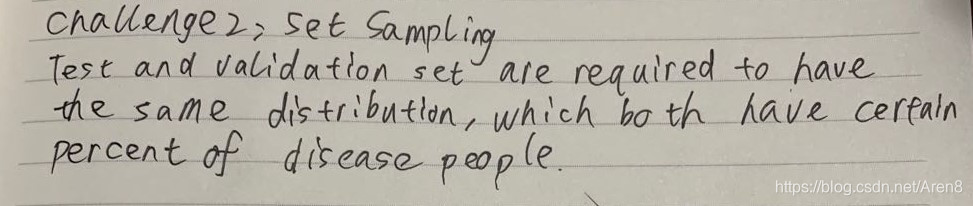 Challenge 2; Set Sampling
Test and validation set are required to have
the same distribution, which both have certain
percent of disease people.
https://blog.csdn.net/Aren8